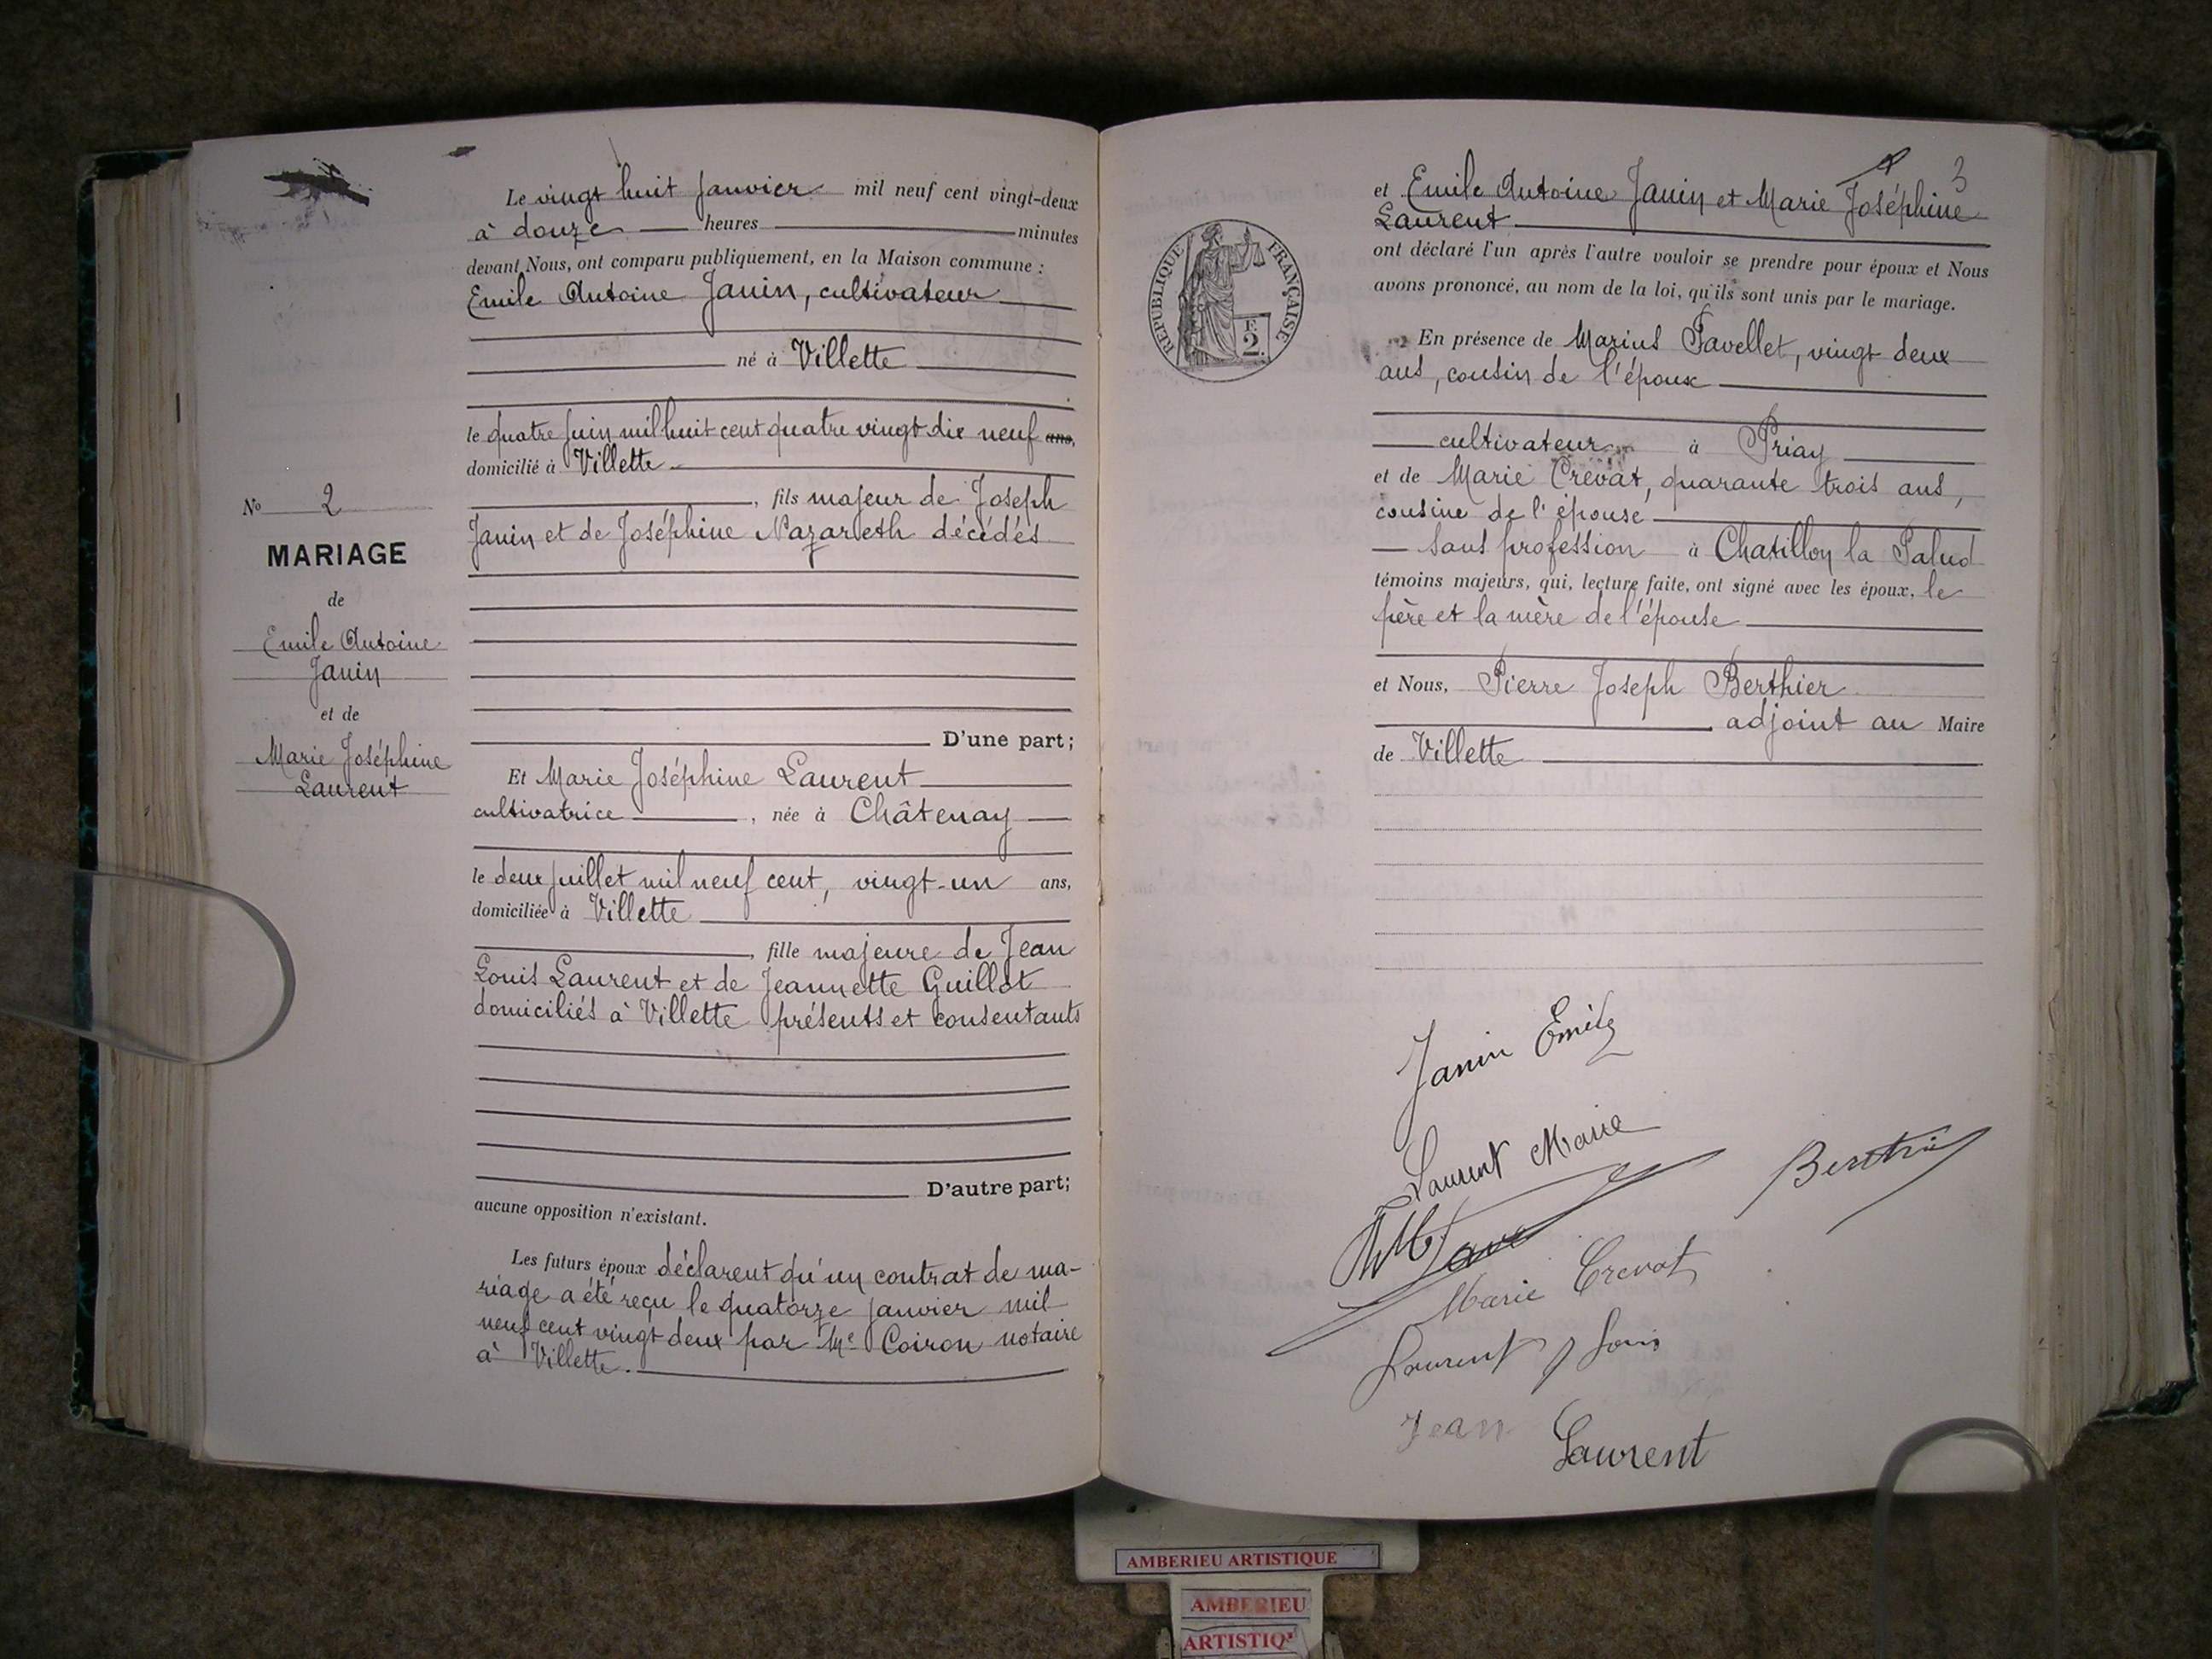 Le vingt huit janvier mil neuf cent vingt-deux
à douze heures minutes
devant Nous, ont comparu publiquement, en la Maison commune :
Emile Antoine Janin, cultivateur
né à Villette
le quatre juin mil huit cent quatre vingt dix neuf ans,
domicilié à Villette
, fils majeur de Joseph
Janin et de Joséphine Nazareth décédés
D'une part;
Et Marie Joséphine Laurent
cultivatrice , née à Châtenay
le deux juillet mil neuf cent, vingt-un ans,
domiciliée à Villette
, fille majeure de Jean
Louis Laurent et de Jeannette Guillot
domiciliés à Villette présents et consentants
D'autre part;
aucune opposition n'existant.
Les futurs époux déclarent qu'un contrat de ma-
riage a été reçu le quatorze janvier mil
neuf cent vingt deux par Me Coiron notaire
à Villette.
No 2
MARIAGE
de
Emile Antoine
Janin
et de
Marie Joséphine
Laurent
3
et Emile Antoine Janin et Marie Joséphine
Laurent
ont déclaré l'un après l'autre vouloir se prendre pour époux et Nous
avons prononcé, au nom de la loi, qu'ils sont unis par le mariage.
En présence de Marius Pavellet, vingt deux
ans, cousin de l'époux
cultivateur à Priay
et de Marie Crevat, quarante trois ans,
cousine de l'épouse
sans profession à Chatillon la Palud
témoins majeurs, qui, lecture faite, ont signé avec les époux, le
père et la mère de l'épouse
et Nous, Pierre Joseph Berthier
adjoint au Maire
de Villette
RÉPUBLIQUE FRANÇAISE
F.
2.
Janin Emile
Laurent Marie
Berthier
Marie Crevat
Laurent Louis
Jean Laurent
AMBERIEU ARTISTIQUE
AMBERIEU
ARTISTIQ